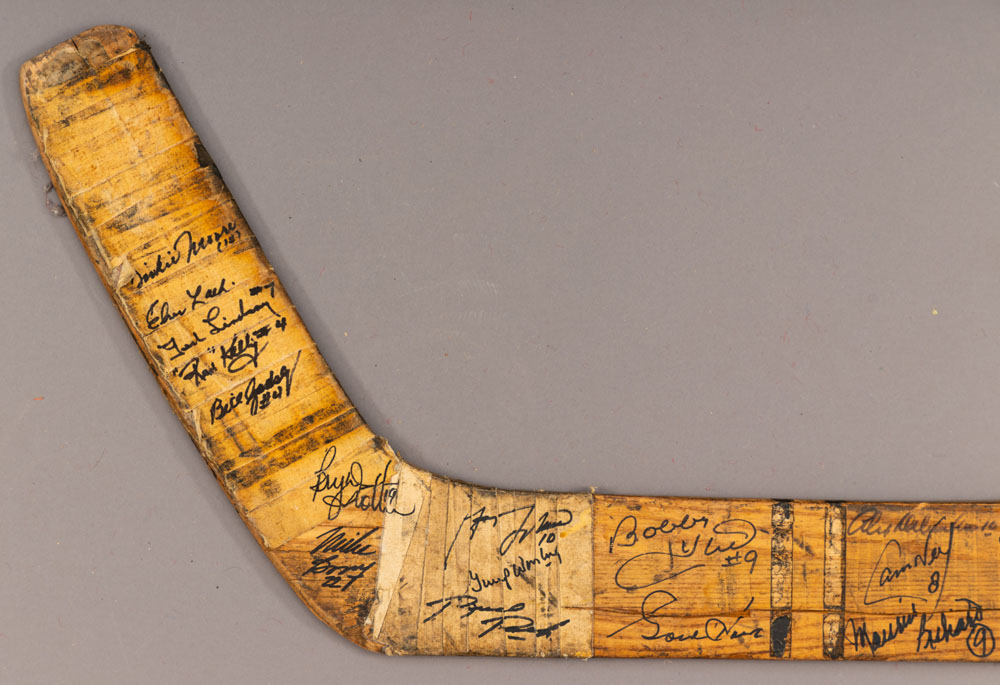 Dickie Moore
(12)
Elmer Lach.
Ted Lindsay #7
"Red" Kelly #4
Bill Gadsby
#4
Bryan
Trottier 19
Mike
Bossy
22
Guy Lafleur
10
Gump Worsley
Bobby
Hull
#9
Gordie Howe
Alex Delvecchio 10
Cam Neely
8
Maurice Richard
9